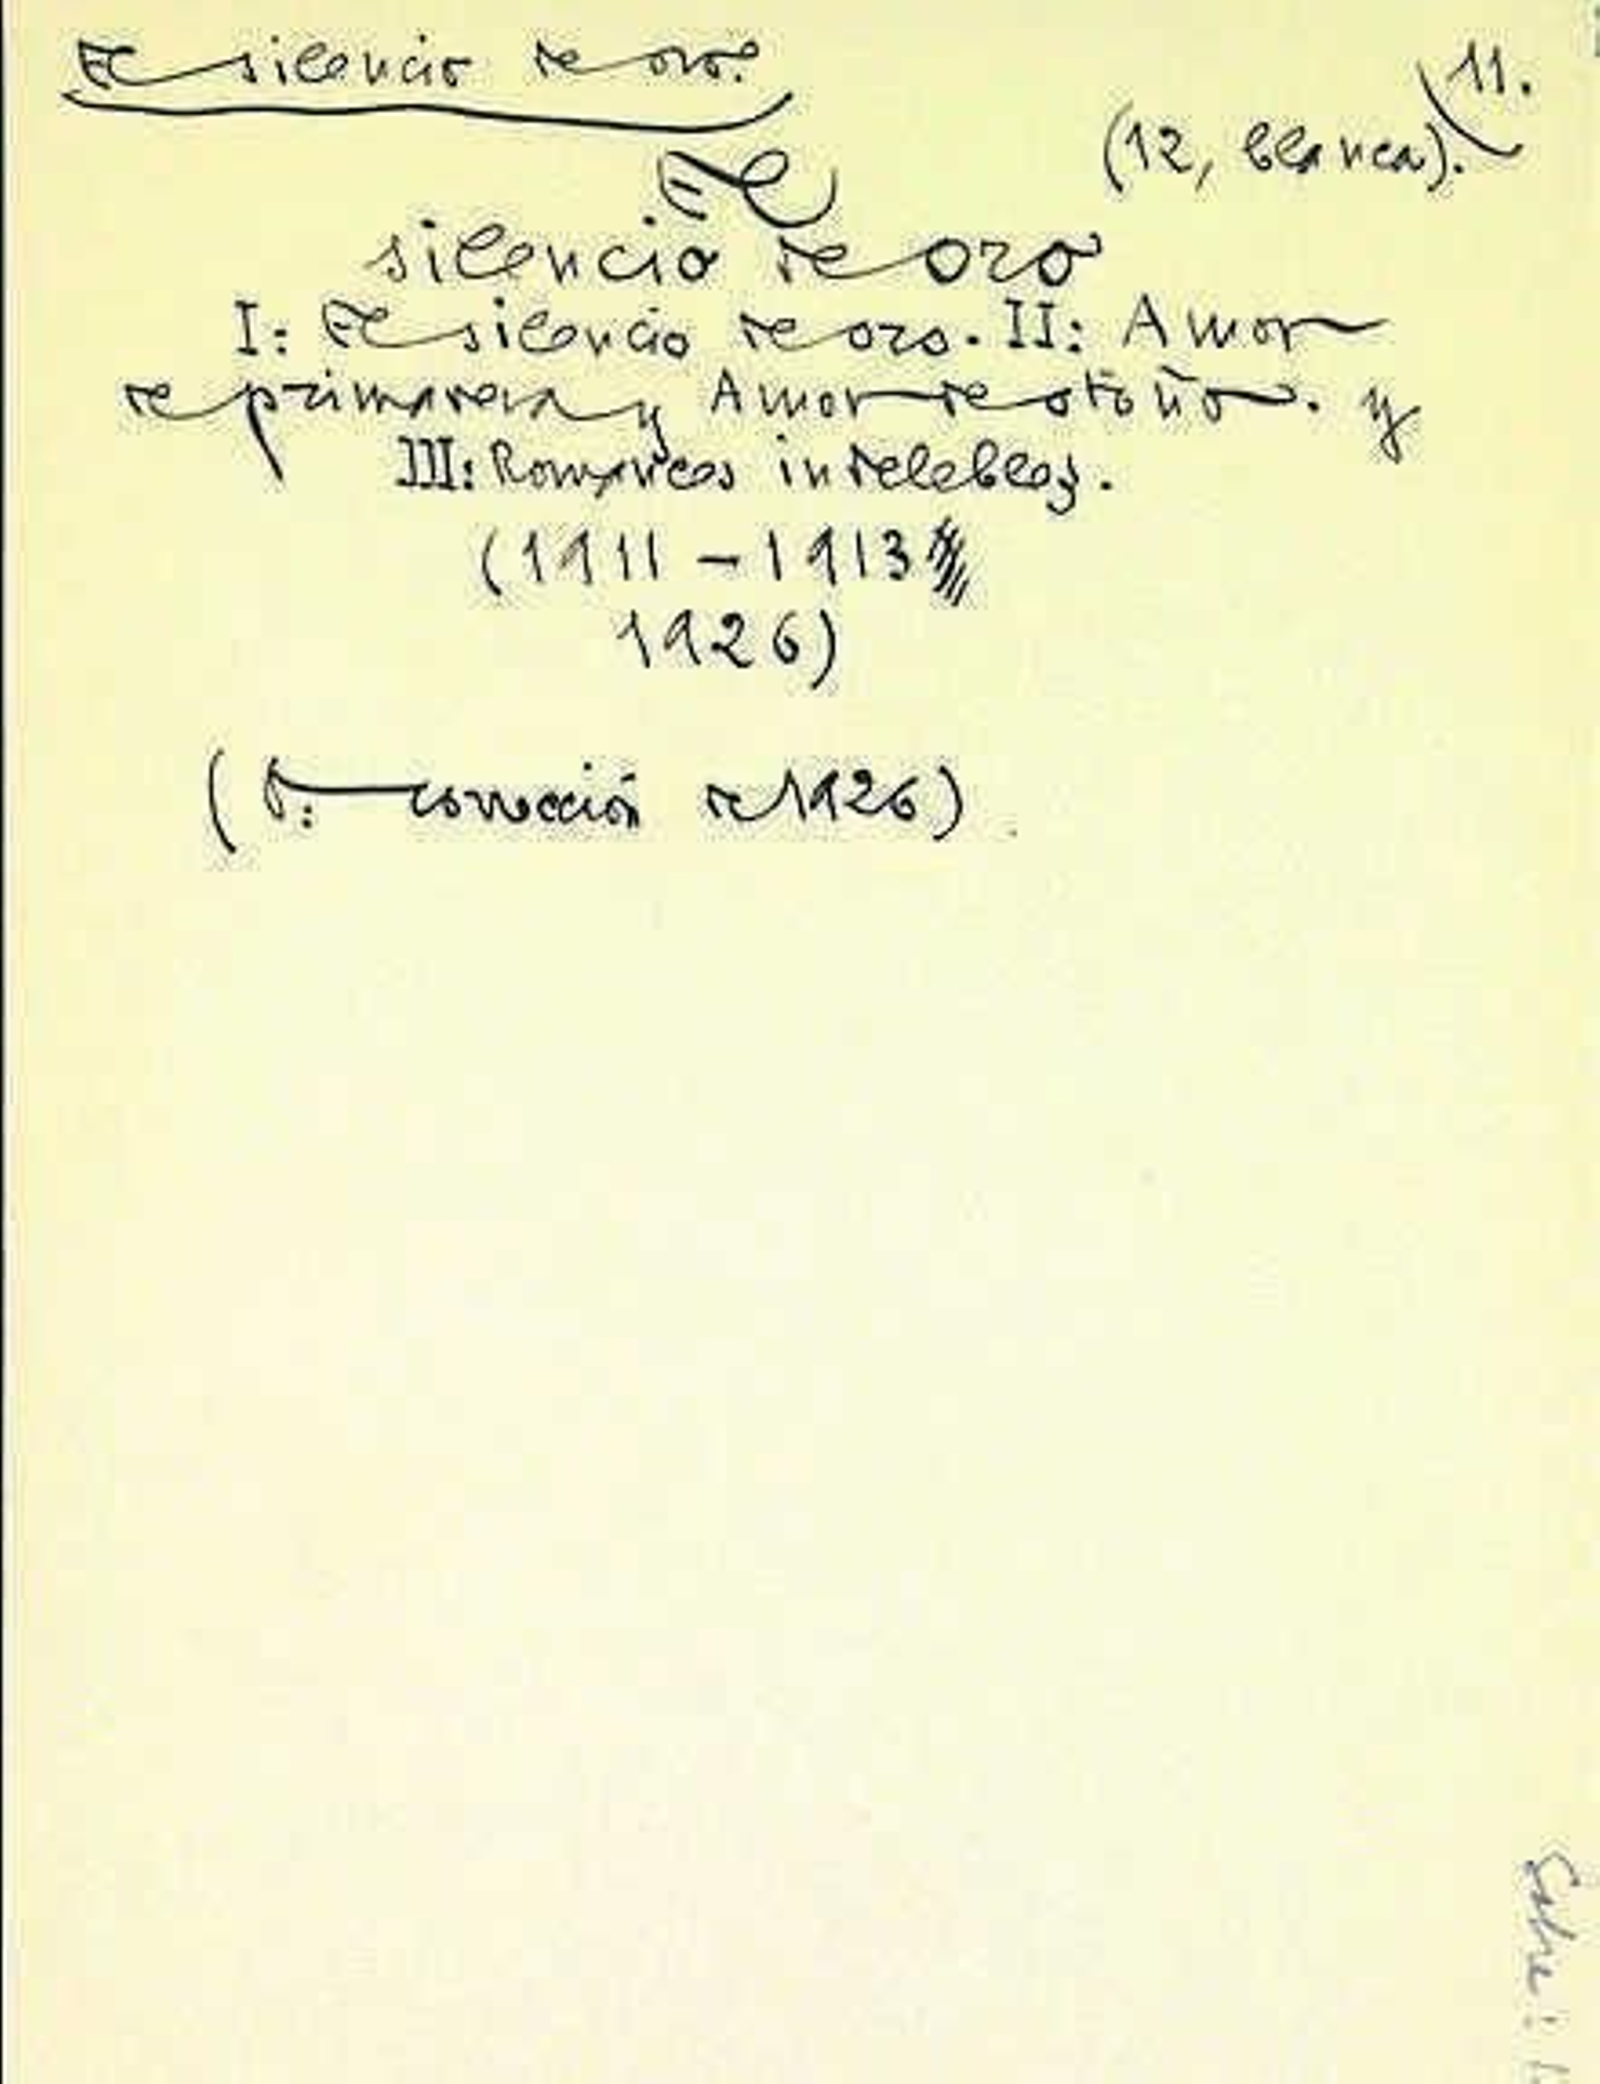 El silencio de oro.
11.
(12, blanca).
El
silencio de oro
I: El silencio de oro. II: Amor
de primavera y Amor de otoño. y
III: Romances indelebles.
(1911 – 1913
1926)
( corrección de 1926)